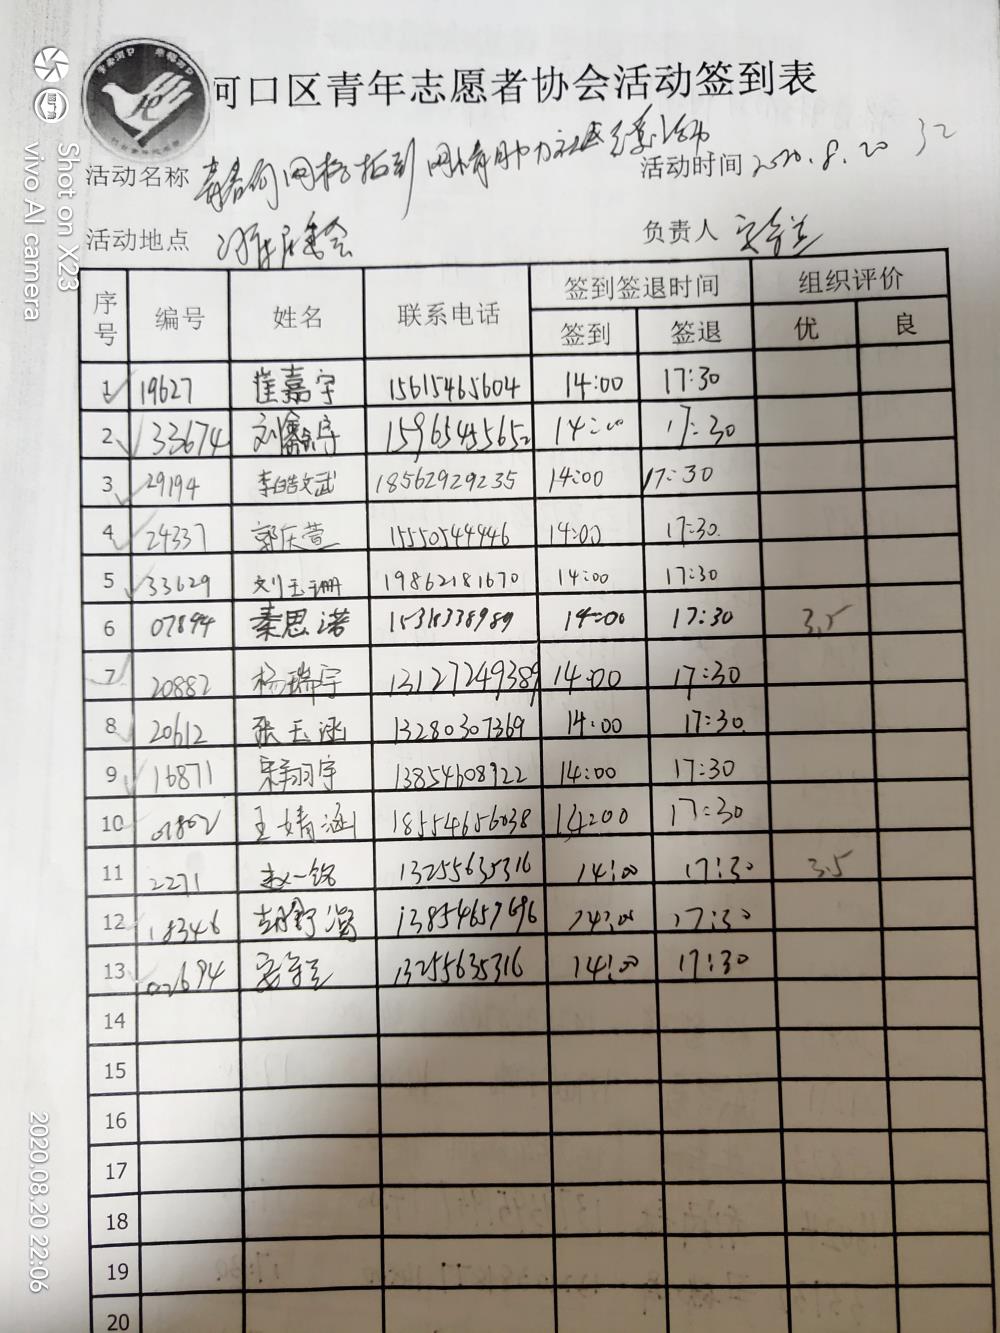 河口区青年志愿者协会活动签到表
活动名称 活动时间 2020.8.20 32
活动地点 负责人
序号 编号 姓名 联系电话 签到签退时间 组织评价
签到 签退 优 良
1 19627 崔嘉宇 15615465604 14:00 17:30
2 33674 刘鑫宇 15965455652 14:00 17:30
3 29194 李皓文武 18562929235 14:00 17:30
4 24337 郭庆萱 15550544446 14:00 17:30
5 33629 刘玉珊 19862181670 14:00 17:30
6 07894 秦思诺 14:00 17:30 3.5
7 20882 杨瑞宇 13127249389 14:00 17:30
8 20612 张玉涵 13280307369 14:00 17:30
9 16871 宋翔宇 13854608922 14:00 17:30
10 王婧涵 18554656038 14:00 17:30
11 2271 赵一铭 13255635316 14:00 17:30 3.5
12 18346 13854657696 14:00 17:30
13 02694 13255635316 14:00 17:30
14
15
16
17
18
19
20
Shot on X23
vivo AI camera
2020.08.20 22:06